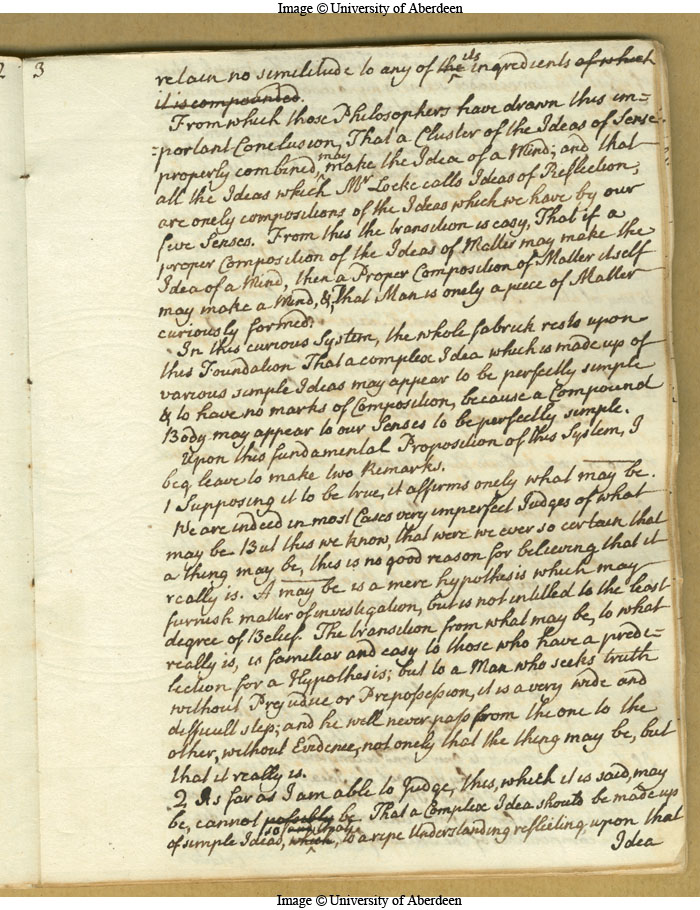 Image © University of Aberdeen
2 3
retain no similitude to any of the its ingredients of which
it is compounded.
From which those Philosophers have drawn this im=
=portant Conclusion, That a Cluster of the Ideas of Sense
properly combined, may make the Idea of a Mind; and that
all the Ideas which Mr Locke calls Ideas of Reflection,
are onely compositions of the Ideas which we have by our
five Senses. From this the transition is easy, That if a
proper Composition of the Ideas of Matter may make the
Idea of a Mind, then a Proper Composition of Matter itself
may make a Mind, & that Man is onely a piece of Matter
curiously formed.
In this curious System, the whole fabrick rests upon
this Foundation That a complex Idea which is made up of
various simple Ideas may appear to be perfectly simple
& to have no marks of Composition, because a Compound
Body may appear to our Senses to be perfectly simple.
Upon this fundamental Proposition of this System, I
beg leave to make two Remarks.
1 Supposing it to be true, it affirms onely what may be.
We are indeed in most Cases very imperfect Judges of what
may be But this we know, that were we ever so certain that
a thing may be, this is no good reason for believing that it
really is. A may be is a mere hypothesis which may
furnish matter of investigation, but is not intitled to the least
degree of Belief. The transition from what may be, to what
really is, is familiar and easy to those who have a prede=
lection for a Hypothesis; but to a Man who seeks truth
without Prejudice or Prepossession, it is a very wide and
difficult step; and he will never pass from the one to the
other, without Evidence, not onely that the thing may be, but
that it really is.
2 As far as I am able to Judge, this, which it is said, may
be, cannot possibly be. That a Complex Idea should be made up
of simple Ideas, which, so that to a ripe Understanding reflecting upon that
Idea
Image © University of Aberdeen